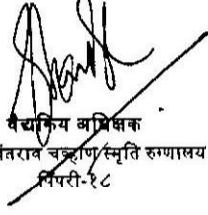 वैद्यकिय अधिक्षक
तराव चव्हाण स्मृति रुग्णालय
पिंपरी-१८